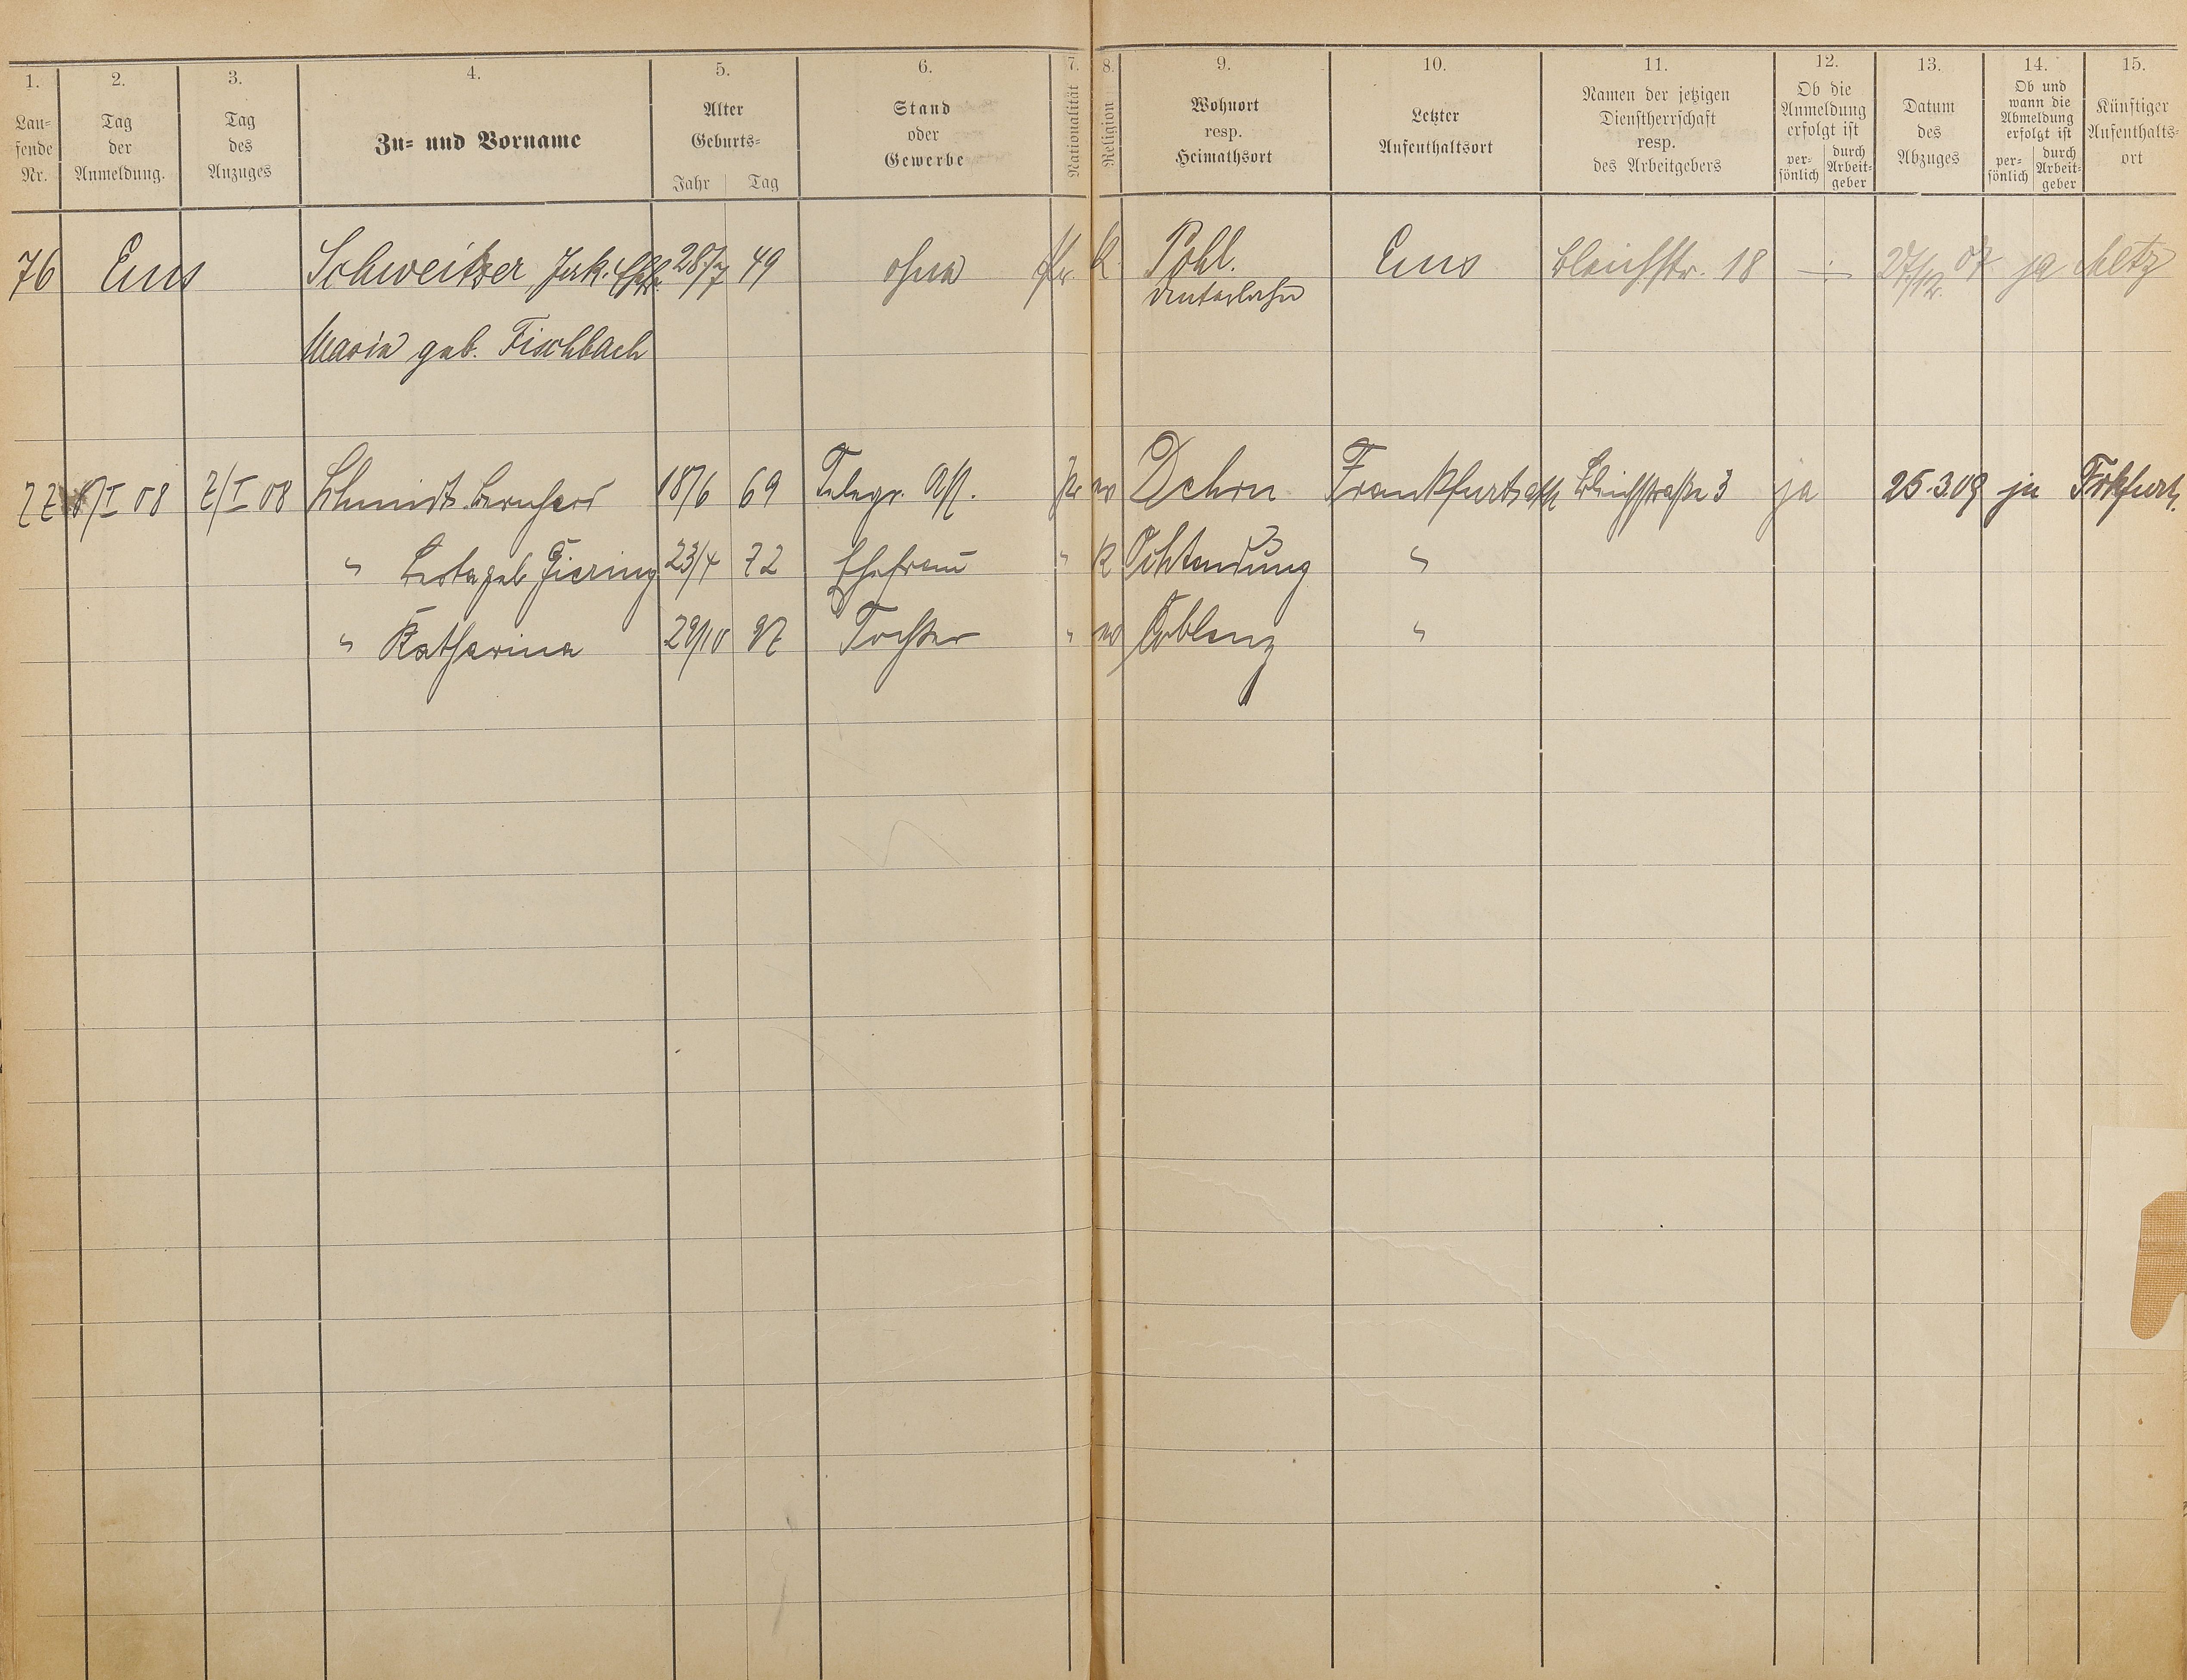 1. 2. 3. 4. 5. 6. 7. 8. 9. 10. 11. 12. 13. 14. 15.
Lau-
fende
Nr.
Tag
der
Anmeldung.
Tag
des
Anzuges
Zu- und Vorname
Alter
Geburts-
Jahr Tag
Stand
oder
Gewerbe
Nationalität
Religion
Wohnort
resp.
Heimathsort
Letzter
Aufenthaltsort
Namen der jetzigen
Dienstherrschaft
resp.
des Arbeitgebers
Ob die
Anmeldung
erfolgt ist
per-
sönlich
durch
Arbeit-
geber
Datum
des
Abzuges
Ob und
wann die
Abmeldung
erfolgt ist
per-
sönlich
durch
Arbeit-
geber
Künftiger
Aufenthalts-
ort
76 Ems Schweitzer, Jak. 28/7 49 ohne Pr. k. Pohl. Ems Bleichstr. 18 27/12. 07 ja Metz
Unterlahn
Maria geb. Fischbach
77 8/I 08 7/I 08 Schmidt Bernhard 18/6 69 Telegr. Ass. Pr ev Dehrn Frankfurt Bleichstraße 3 ja 25.3.09 ja Frkfurt.
" geb. Giering 23/4 72 Ehefrau " k Ochtendung "
" Katharina 29/10 97 Tochter " ev Coblenz "